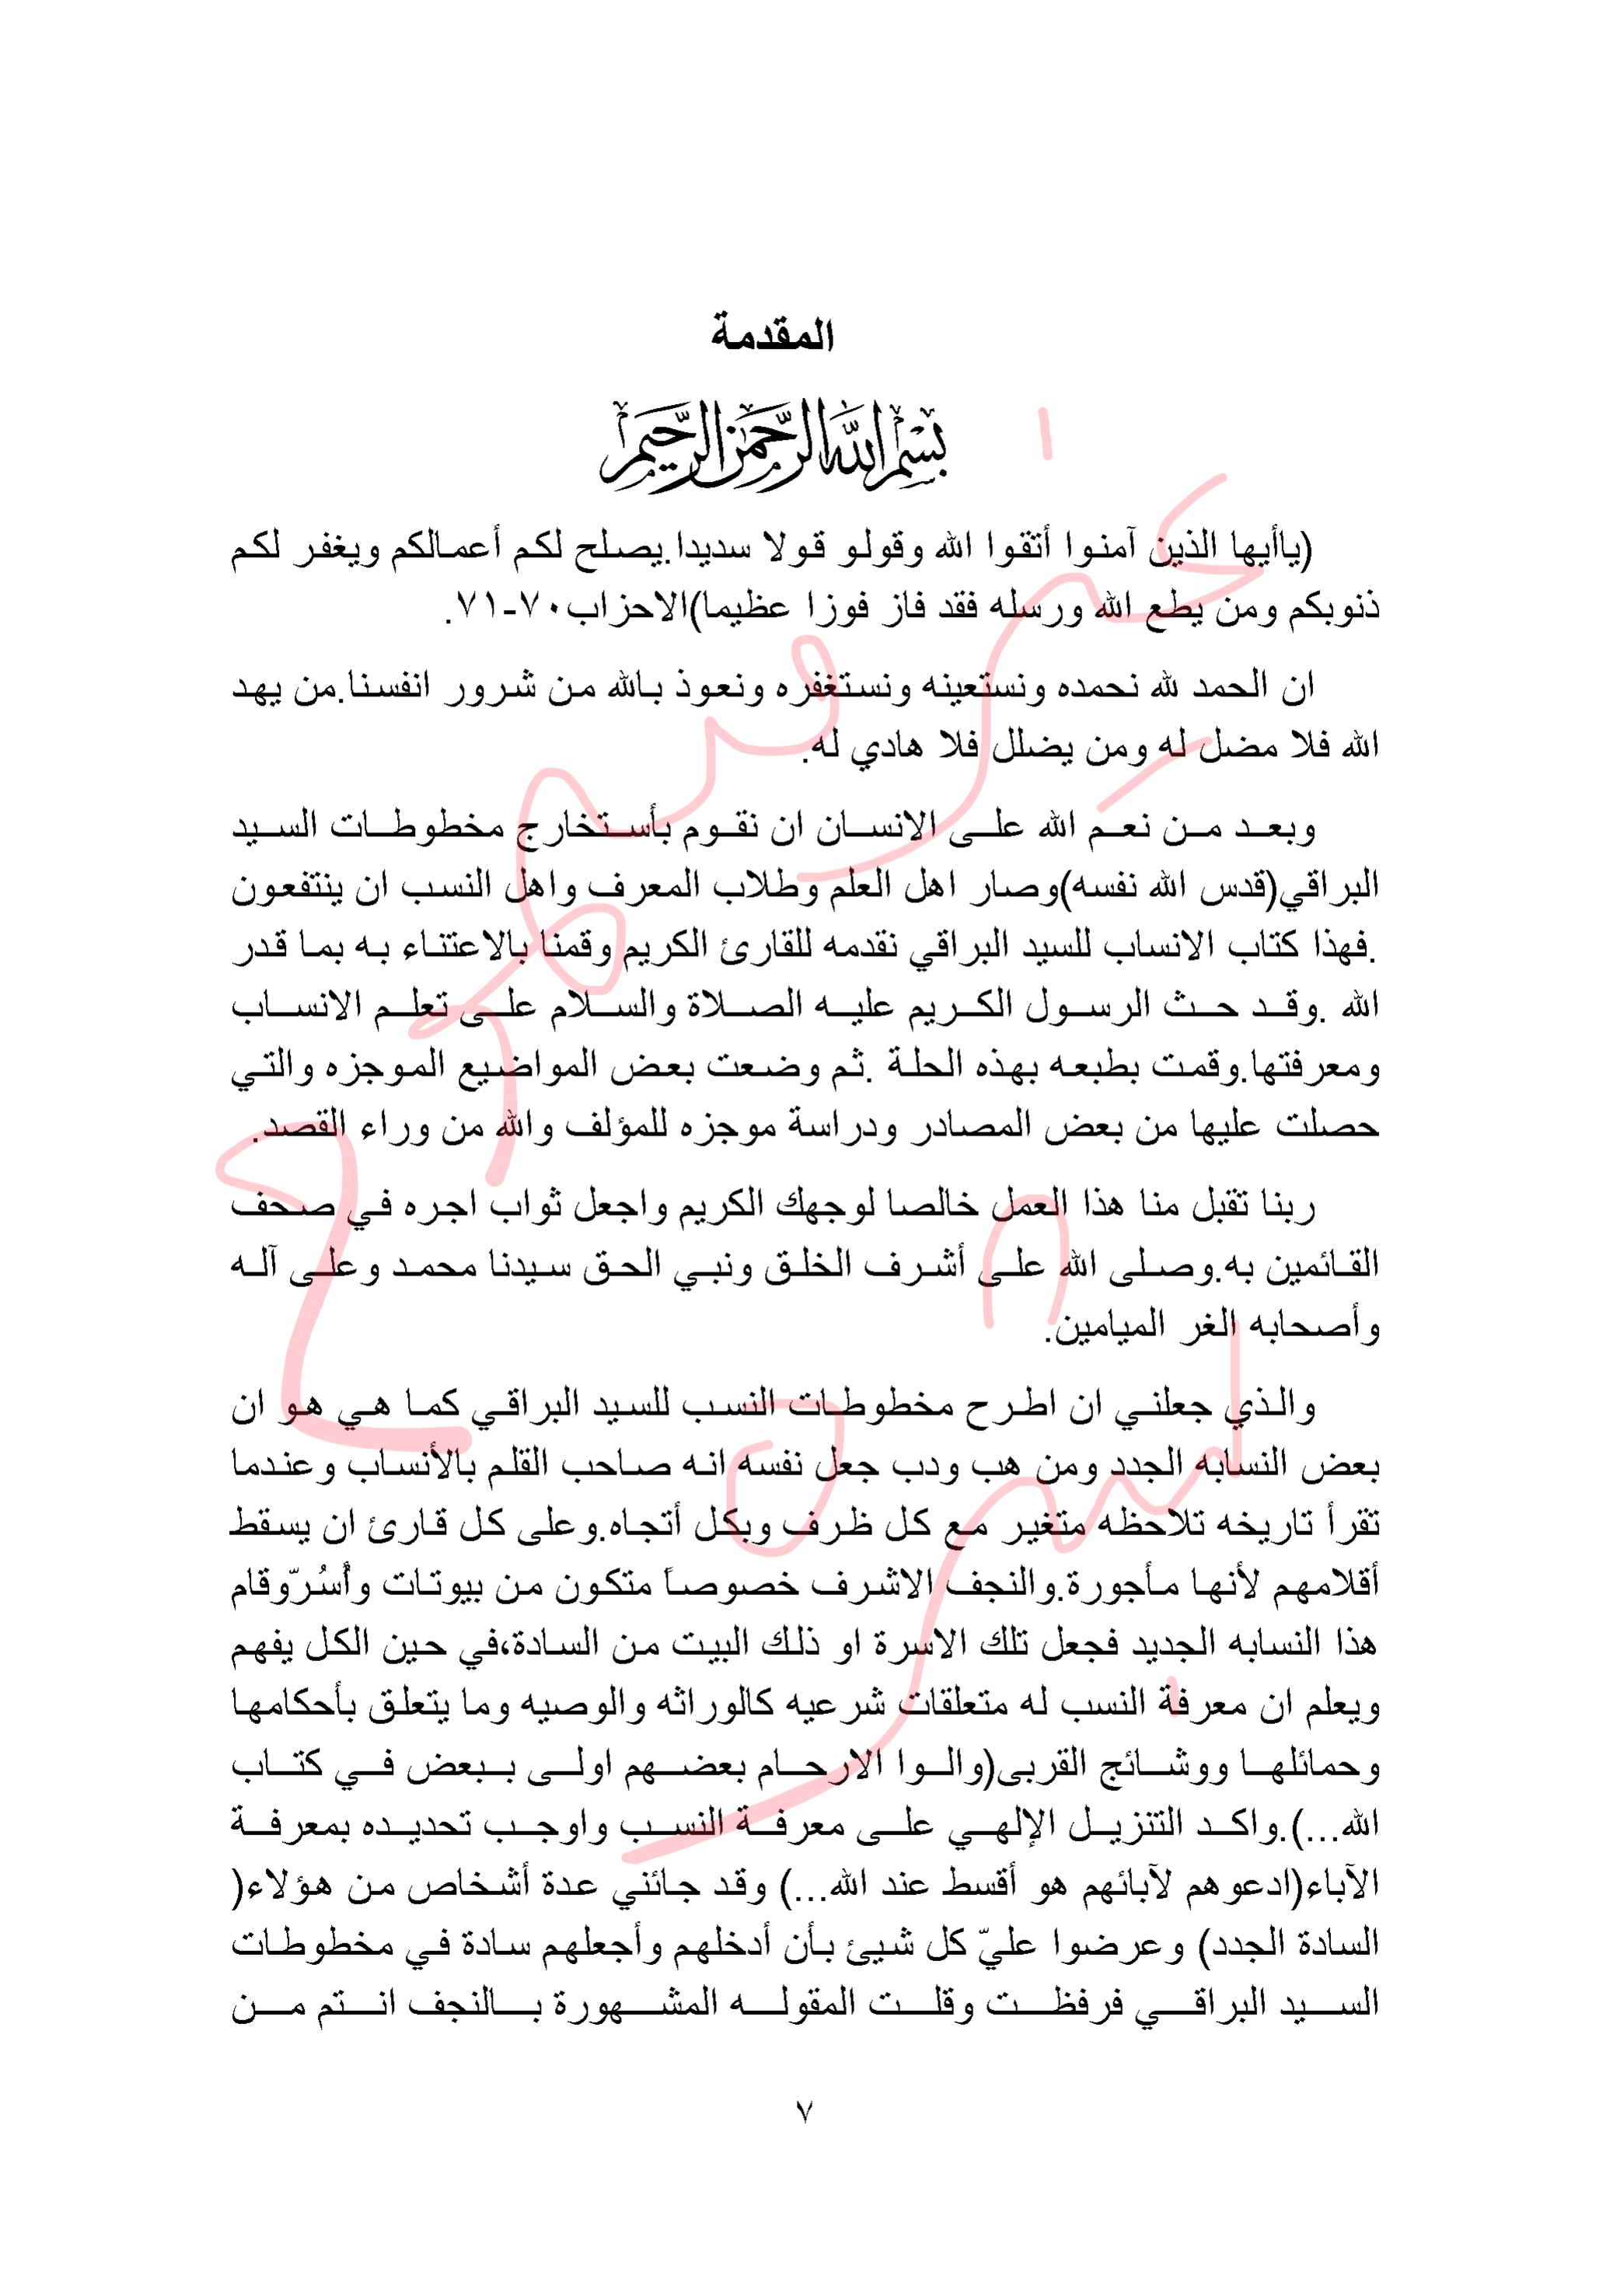 المقدمة
بسم الله الرحمن الرحيم
(ياأيها الذين آمنوا أتقوا الله وقولو قولا سديدا.يصلح لكم أعمالكم ويغفر لكم
ذنوبكم ومن يطع الله ورسله فقد فاز فوزا عظيما)الاحزاب٧٠-٧١.
ان الحمد لله نحمده ونستعينه ونستغفره ونعوذ بالله من شرور انفسنا.من يهد
الله فلا مضل له ومن يضلل فلا هادي له.
وبعد من نعم الله على الانسان ان نقوم بأستخارج مخطوطات السيد
البراقي(قدس الله نفسه)وصار اهل العلم وطلاب المعرف واهل النسب ان ينتفعون
.فهذا كتاب الانساب للسيد البراقي نقدمه للقارئ الكريم وقمنا بالاعتناء به بما قدر
الله .وقد حث الرسول الكريم عليه الصلاة والسلام على تعلم الانساب
ومعرفتها.وقمت بطبعه بهذه الحلة .ثم وضعت بعض المواضيع الموجزه والتي
حصلت عليها من بعض المصادر ودراسة موجزه للمؤلف والله من وراء القصد.
ربنا تقبل منا هذا العمل خالصا لوجهك الكريم واجعل ثواب اجره في صحف
القائمين به.وصلى الله على أشرف الخلق ونبي الحق سيدنا محمد وعلى آله
وأصحابه الغر الميامين.
والذي جعلني ان اطرح مخطوطات النسب للسيد البراقي كما هي هو ان
بعض النسابه الجدد ومن هب ودب جعل نفسه انه صاحب القلم بالأنساب وعندما
تقرأ تاريخه تلاحظه متغير مع كل ظرف وبكل أتجاه.وعلى كل قارئ ان يسقط
أقلامهم لأنها مأجورة.والنجف الاشرف خصوصاً متكون من بيوتات وأُسُرّوقام
هذا النسابه الجديد فجعل تلك الاسرة او ذلك البيت من السادة،في حين الكل يفهم
ويعلم ان معرفة النسب له متعلقات شرعيه كالوراثه والوصيه وما يتعلق بأحكامها
وحمائلها ووشائج القربى(والوا الارحام بعضهم اولى ببعض في كتاب
الله...).واكد التنزيل الإلهي على معرفة النسب واوجب تحديده بمعرفة
الآباء(ادعوهم لآبائهم هو أقسط عند الله...) وقد جائني عدة أشخاص من هؤلاء(
السادة الجدد) وعرضوا عليّ كل شيئ بأن أدخلهم وأجعلهم سادة في مخطوطات
السيد البراقي فرفظت وقلت المقوله المشهورة بالنجف انتم من
٧